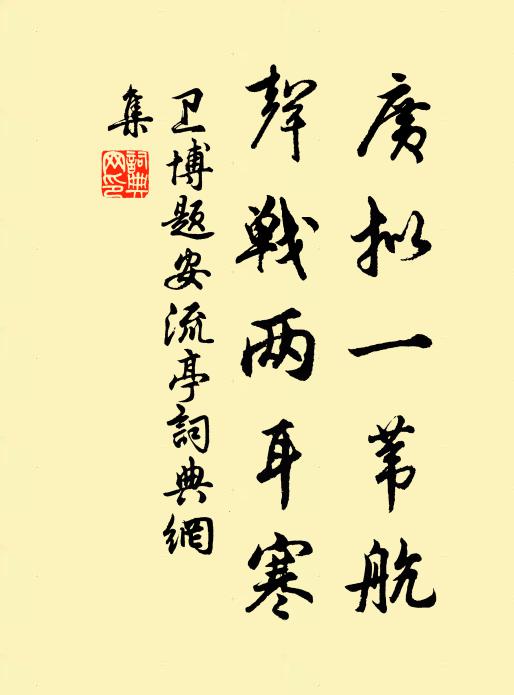 廣拟一苇航
聲戰两耳寒
卫博题安流亭詞典網
集
詞典
网印